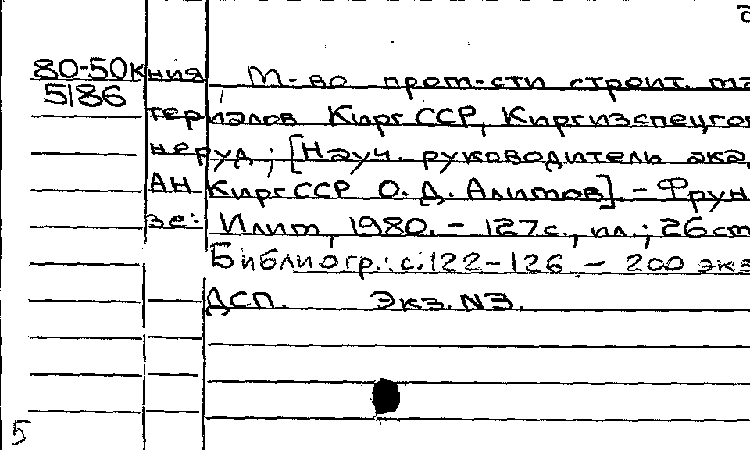 80-50к
5186
ния М-во пром-сти строит. ма
териалов Кирг ССР, Киргизспецгео
неруд; [Науч. руководитель ака.
АН КиргССР О. Д. Алимов]. - Фрун
зе: Илим, 1980. - 127с., ил.; 26см
Библиогр.: с. 122-126 - 200 экз
ДСП. Экз. №3.
5